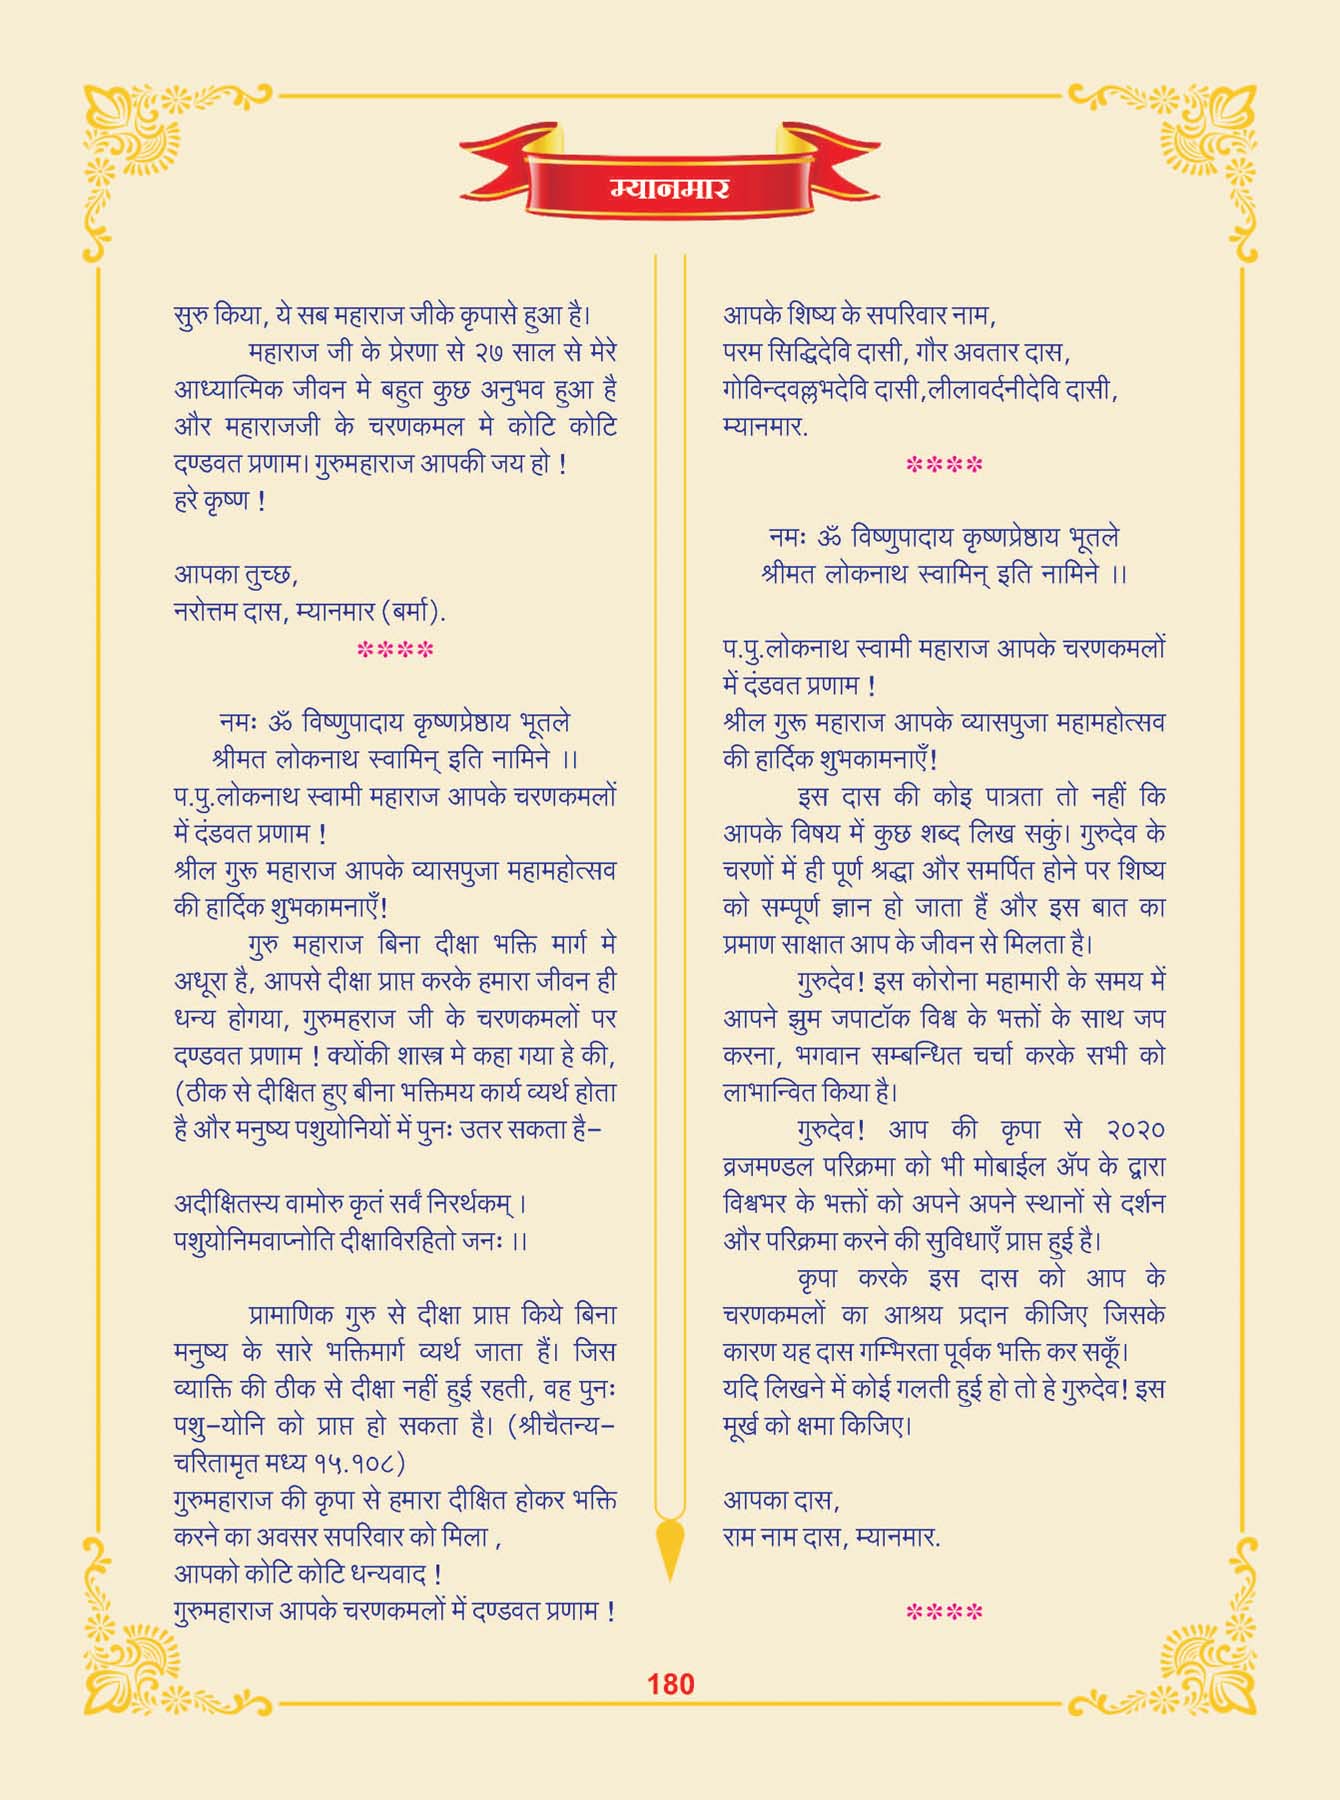 म्यानमार
सुरु किया, ये सब महाराज जीके कृपासे हुआ है।
महाराज जी के प्रेरणा से २७ साल से मेरे
आध्यात्मिक जीवन मे बहुत कुछ अनुभव हुआ है
और महाराजजी के चरणकमल मे कोटि कोटि
दण्डवत प्रणाम। गुरुमहाराज आपकी जय हो !
हरे कृष्ण !
आपका तुच्छ,
नरोत्तम दास, म्यानमार (बर्मा).
****
नमः ॐ विष्णुपादाय कृष्णप्रेष्ठाय भूतले
श्रीमत लोकनाथ स्वामिन् इति नामिने ।।
प.पु.लोकनाथ स्वामी महाराज आपके चरणकमलों
में दंडवत प्रणाम !
श्रील गुरू महाराज आपके व्यासपुजा महामहोत्सव
की हार्दिक शुभकामनाएँ!
गुरु महाराज बिना दीक्षा भक्ति मार्ग मे
अधूरा है, आपसे दीक्षा प्राप्त करके हमारा जीवन ही
धन्य होगया, गुरुमहराज जी के चरणकमलों पर
दण्डवत प्रणाम ! क्योंकी शास्त्र मे कहा गया हे की,
(ठीक से दीक्षित हुए बीना भक्तिमय कार्य व्यर्थ होता
है और मनुष्य पशुयोनियों में पुनः उतर सकता है–
अदीक्षितस्य वामोरु कृतं सर्वं निरर्थकम् ।
पशुयोनिमवाप्नोति दीक्षाविरहितो जनः ।।
प्रामाणिक गुरु से दीक्षा प्राप्त किये बिना
मनुष्य के सारे भक्तिमार्ग व्यर्थ जाता हैं। जिस
व्याक्ति की ठीक से दीक्षा नहीं हुई रहती, वह पुनः
पशु–योनि को प्राप्त हो सकता है। (श्रीचैतन्य–
चरितामृत मध्य १५.१०८)
गुरुमहाराज की कृपा से हमारा दीक्षित होकर भक्ति
करने का अवसर सपरिवार को मिला ,
आपको कोटि कोटि धन्यवाद !
गुरुमहाराज आपके चरणकमलों में दण्डवत प्रणाम !
आपके शिष्य के सपरिवार नाम,
परम सिद्धिदेवि दासी, गौर अवतार दास,
गोविन्दवल्लभदेवि दासी,लीलावर्दनीदेवि दासी,
म्यानमार.
****
नमः ॐ विष्णुपादाय कृष्णप्रेष्ठाय भूतले
श्रीमत लोकनाथ स्वामिन् इति नामिने ।।
प.पु.लोकनाथ स्वामी महाराज आपके चरणकमलों
में दंडवत प्रणाम !
श्रील गुरू महाराज आपके व्यासपुजा महामहोत्सव
की हार्दिक शुभकामनाएँ!
इस दास की कोइ पात्रता तो नहीं कि
आपके विषय में कुछ शब्द लिख सकुं। गुरुदेव के
चरणों में ही पूर्ण श्रद्धा और समर्पित होने पर शिष्य
को सम्पूर्ण ज्ञान हो जाता हैं और इस बात का
प्रमाण साक्षात आप के जीवन से मिलता है।
गुरुदेव! इस कोरोना महामारी के समय में
आपने झुम जपाटॉक विश्व के भक्तों के साथ जप
करना, भगवान सम्बन्धित चर्चा करके सभी को
लाभान्वित किया है।
गुरुदेव! आप की कृपा से २०२०
व्रजमण्डल परिक्रमा को भी मोबाईल ॲप के द्वारा
विश्वभर के भक्तों को अपने अपने स्थानों से दर्शन
और परिक्रमा करने की सुविधाएँ प्राप्त हुई है।
कृपा करके इस दास को आप के
चरणकमलों का आश्रय प्रदान कीजिए जिसके
कारण यह दास गम्भिरता पूर्वक भक्ति कर सकूँ।
यदि लिखने में कोई गलती हुई हो तो हे गुरुदेव! इस
मूर्ख को क्षमा किजिए।
आपका दास,
राम नाम दास, म्यानमार.
****
180